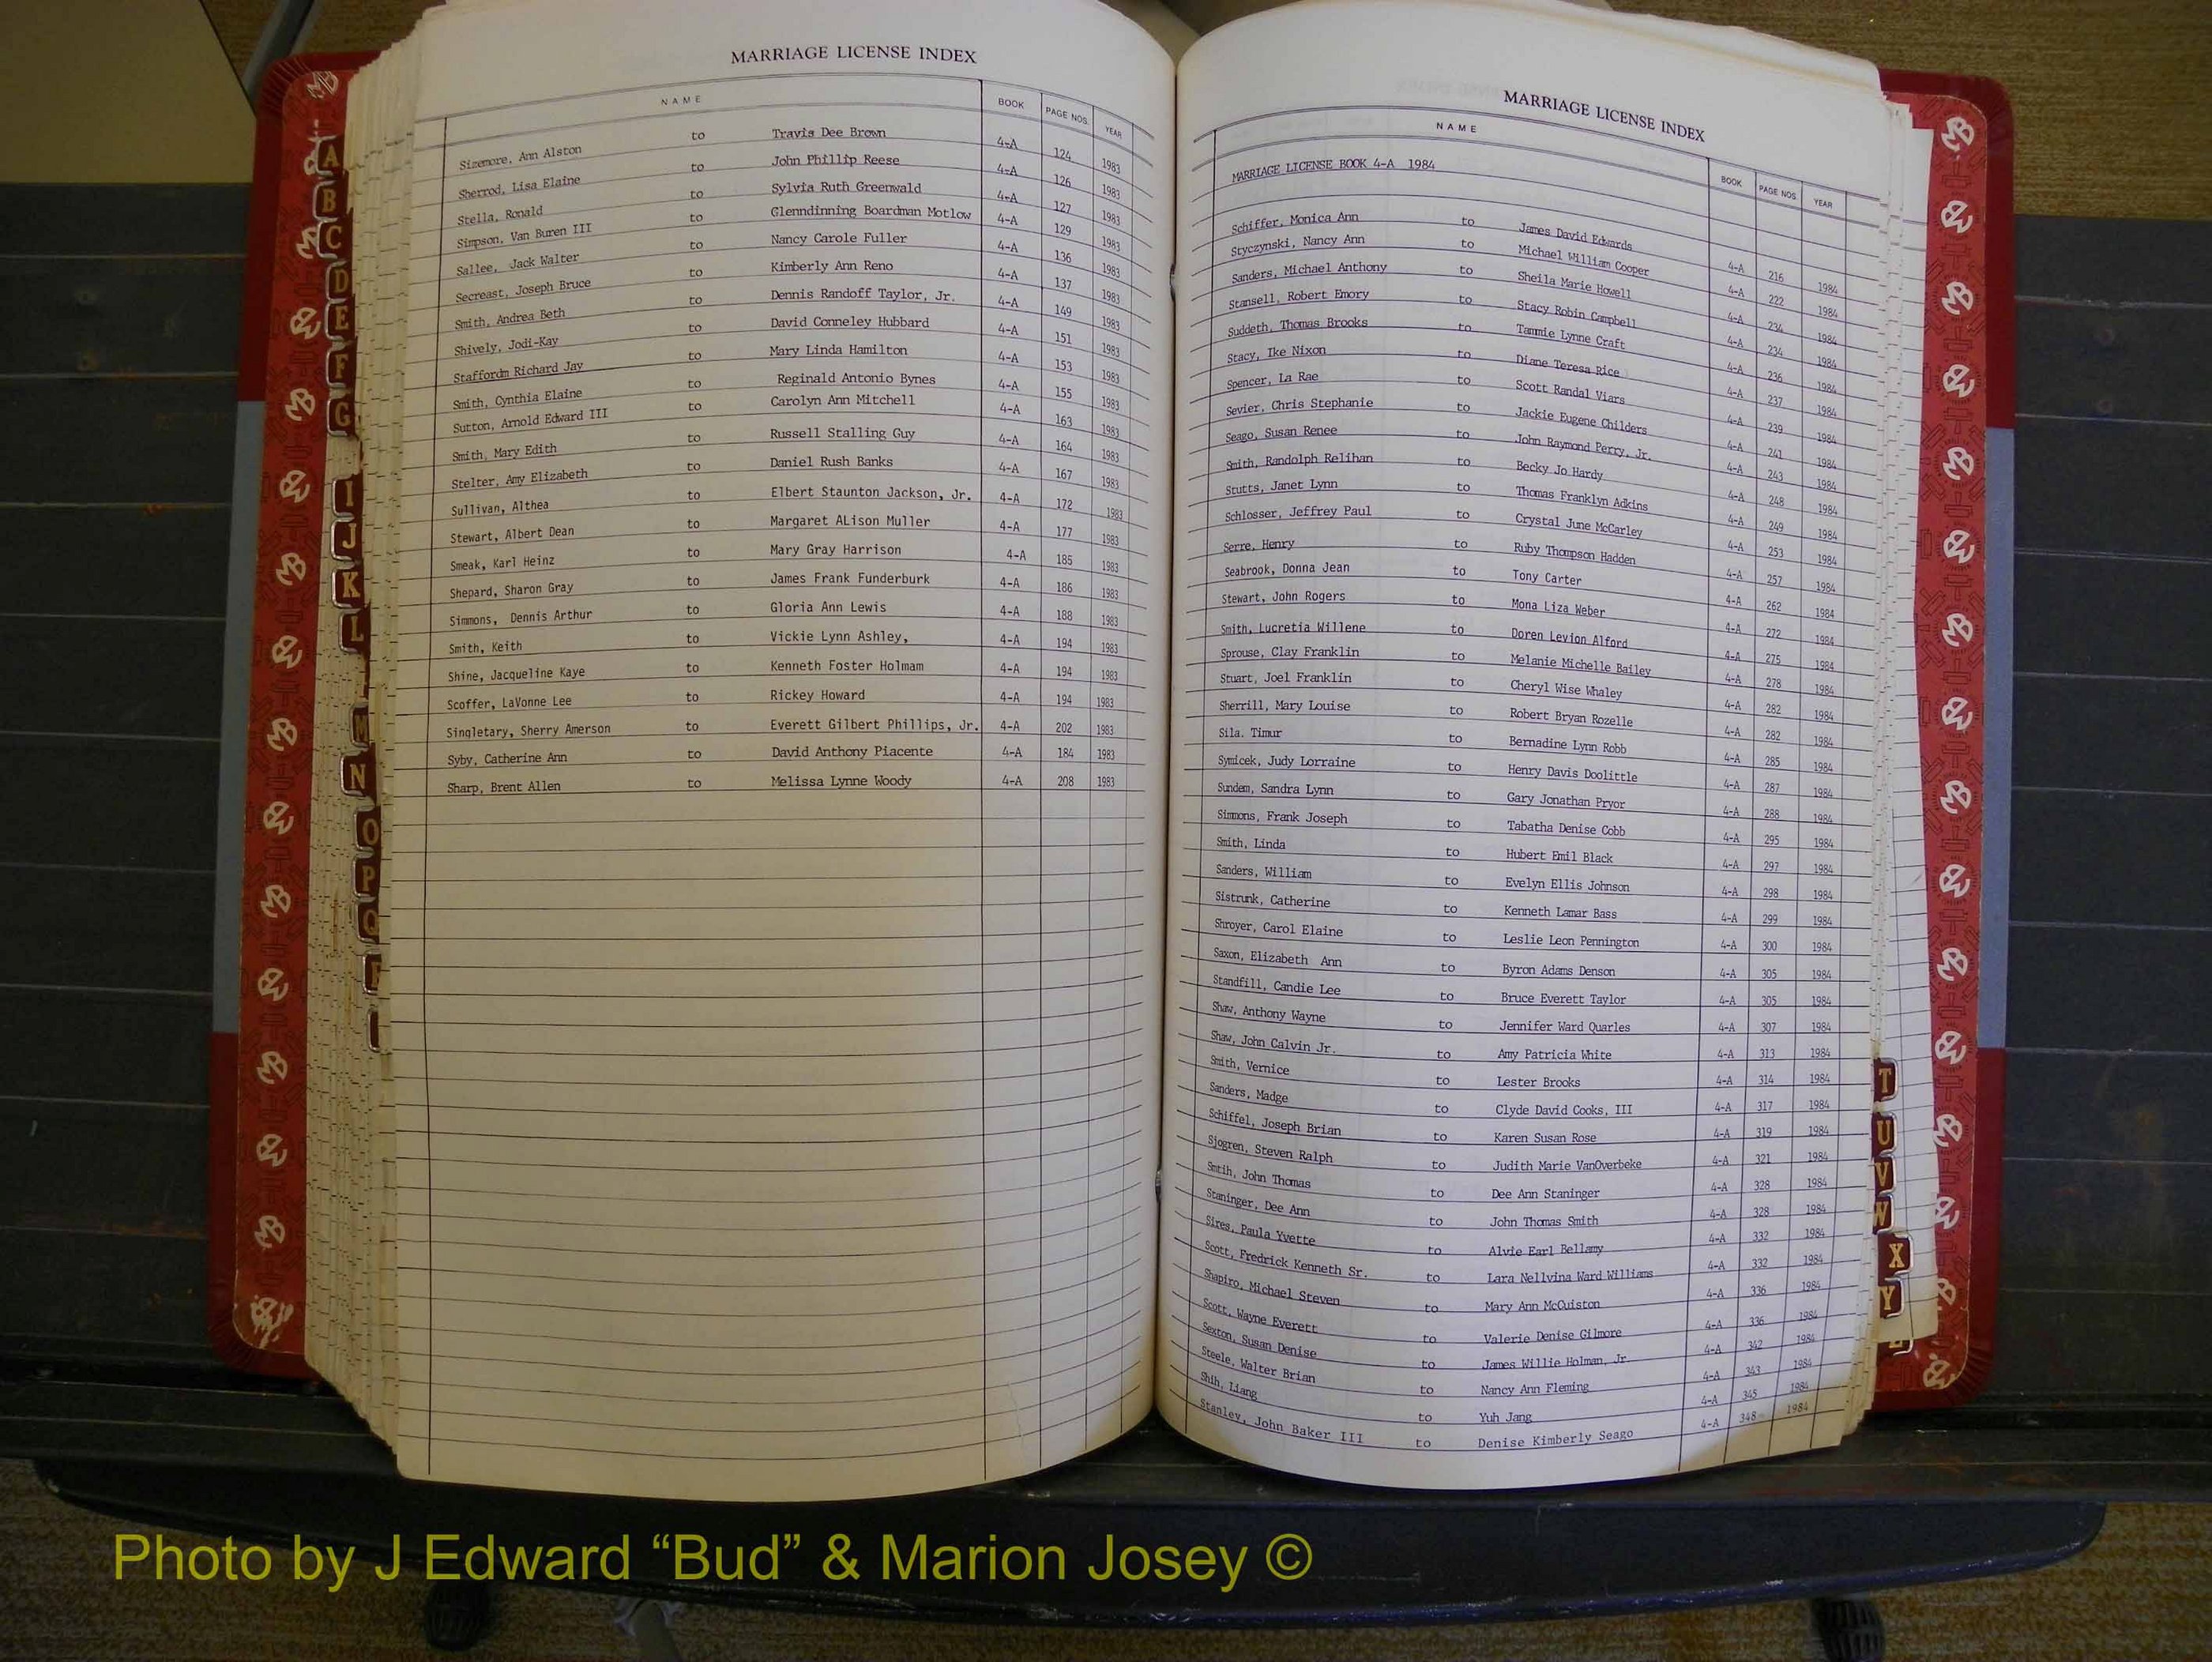 MARRIAGE LICENSE INDEX
NAME BOOK PAGE NOS. YEAR
Sizemore, Ann Alston to Travis Dee Brown 4-A 124 1983
Sherrod, Lisa Elaine to John Phillip Reese 4-A 126 1983
Stella, Ronald to Sylvia Ruth Greenwald 4-A 127 1983
Simpson, Van Buren III to Glenndinning Boardman Motlow 4-A 129 1983
Sallee, Jack Walter to Nancy Carole Fuller 4-A 136 1983
Secreast, Joseph Bruce to Kimberly Ann Reno 4-A 137 1983
Smith, Andrea Beth to Dennis Randoff Taylor, Jr. 4-A 149 1983
Shively, Jodi-Kay to David Conneley Hubbard 4-A 151 1983
Staffordm Richard Jay to Mary Linda Hamilton 4-A 153 1983
Smith, Cynthia Elaine to Reginald Antonio Bynes 4-A 155 1983
Sutton, Arnold Edward III to Carolyn Ann Mitchell 4-A 163 1983
Smith, Mary Edith to Russell Stalling Guy 4-A 164 1983
Stelter, Amy Elizabeth to Daniel Rush Banks 4-A 167 1983
Sullivan, Althea to Elbert Staunton Jackson, Jr. 4-A 172 1983
Stewart, Albert Dean to Margaret ALison Muller 4-A 177 1983
Smeak, Karl Heinz to Mary Gray Harrison 4-A 185 1983
Shepard, Sharon Gray to James Frank Funderburk 4-A 186 1983
Simmons, Dennis Arthur to Gloria Ann Lewis 4-A 188 1983
Smith, Keith to Vickie Lynn Ashley, 4-A 194 1983
Shine, Jacqueline Kaye to Kenneth Foster Holmam 4-A 194 1983
Scoffer, LaVonne Lee to Rickey Howard 4-A 194 1983
Singletary, Sherry Amerson to Everett Gilbert Phillips, Jr. 4-A 202 1983
Syby, Catherine Ann to David Anthony Piacente 4-A 184 1983
Sharp, Brent Allen to Melissa Lynne Woody 4-A 208 1983
A
B
C
D
E
F
G
I
J
K
L
M
N
O
P
Q
MARRIAGE LICENSE INDEX
NAME BOOK PAGE NOS. YEAR
MARRIAGE LICENSE BOOK 4-A 1984
Schiffer, Monica Ann to James David Edwards 4-A 216 1984
Styczynski, Nancy Ann to Michael William Cooper 4-A 222 1984
Sanders, Michael Anthony to Sheila Marie Howell 4-A 234 1984
Stansell, Robert Emory to Stacy Robin Campbell 4-A 234 1984
Suddeth, Thomas Brooks to Tammie Lynne Craft 4-A 236 1984
Stacy, Ike Nixon to Diane Teresa Rice 4-A 237 1984
Spencer, La Rae to Scott Randal Viars 4-A 239 1984
Sevier, Chris Stephanie to Jackie Eugene Childers 4-A 241 1984
Seago, Susan Renee to John Raymond Perry, Jr. 4-A 243 1984
Smith, Randolph Relihan to Becky Jo Hardy 4-A 248 1984
Stutts, Janet Lynn to Thomas Franklyn Adkins 4-A 249 1984
Schlosser, Jeffrey Paul to Crystal June McCarley 4-A 253 1984
Serre, Henry to Ruby Thompson Hadden 4-A 257 1984
Seabrook, Donna Jean to Tony Carter 4-A 262 1984
Stewart, John Rogers to Mona Liza Weber 4-A 272 1984
Smith, Lucretia Willene to Doren Levion Alford 4-A 275 1984
Sprouse, Clay Franklin to Melanie Michelle Bailey 4-A 278 1984
Stuart, Joel Franklin to Cheryl Wise Whaley 4-A 282 1984
Sherrill, Mary Louise to Robert Bryan Rozelle 4-A 282 1984
Sila. Timur to Bernadine Lynn Robb 4-A 285 1984
Symicek, Judy Lorraine to Henry Davis Doolittle 4-A 287 1984
Sundem, Sandra Lynn to Gary Jonathan Pryor 4-A 288 1984
Simmons, Frank Joseph to Tabatha Denise Cobb 4-A 295 1984
Smith, Linda to Hubert Emil Black 4-A 297 1984
Sanders, William to Evelyn Ellis Johnson 4-A 298 1984
Sistrunk, Catherine to Kenneth Lamar Bass 4-A 299 1984
Shroyer, Carol Elaine to Leslie Leon Pennington 4-A 300 1984
Saxon, Elizabeth Ann to Byron Adams Denson 4-A 305 1984
Standfill, Candie Lee to Bruce Everett Taylor 4-A 305 1984
Shaw, Anthony Wayne to Jennifer Ward Quarles 4-A 307 1984
Shaw, John Calvin Jr. to Amy Patricia White 4-A 313 1984
Smith, Vernice to Lester Brooks 4-A 314 1984
Sanders, Madge to Clyde David Cooks, III 4-A 317 1984
Schiffel, Joseph Brian to Karen Susan Rose 4-A 319 1984
Sjogren, Steven Ralph to Judith Marie VanOverbeke 4-A 321 1984
Smtih, John Thomas to Dee Ann Staninger 4-A 328 1984
Staninger, Dee Ann to John Thomas Smith 4-A 328 1984
Sires, Paula Yvette to Alvie Earl Bellamy 4-A 332 1984
Scott, Fredrick Kenneth Sr. to Lara Nellvina Ward Williams 4-A 332 1984
Shapiro, Michael Steven to Mary Ann McCuiston 4-A 336 1984
Scott, Wayne Everett to Valerie Denise Gilmore 4-A 336 1984
Sexton, Susan Denise to James Willie Holman, Jr. 4-A 342 1984
Steele, Walter Brian to Nancy Ann Fleming 4-A 343 1984
Shih, Liang to Yuh Jang 4-A 345 1984
Stanley, John Baker III to Denise Kimberly Seago 4-A 348 1984
T
U
V
W
X
Y
Photo by J Edward “Bud” & Marion Josey ©